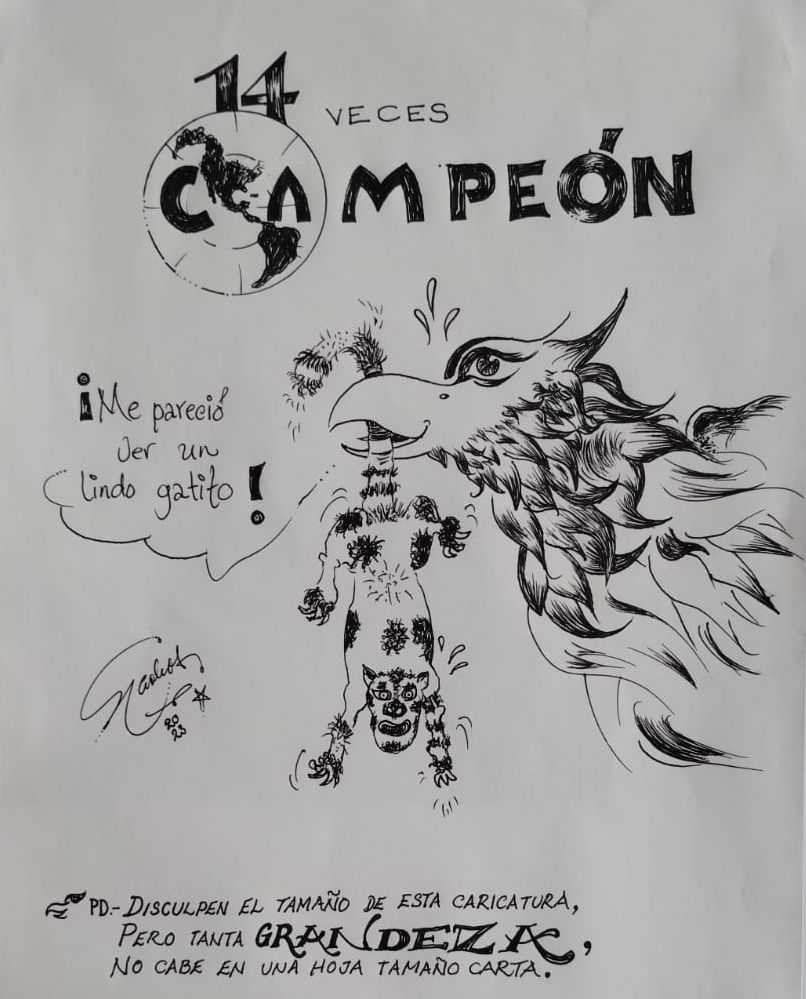 14 VECES
CAMPEÓN
¡Me pareció
ver un
lindo gatito!
2023
PD.- DISCULPEN EL TAMAÑO DE ESTA CARICATURA,
PERO TANTA GRANDEZA,
NO CABE EN UNA HOJA TAMAÑO CARTA.